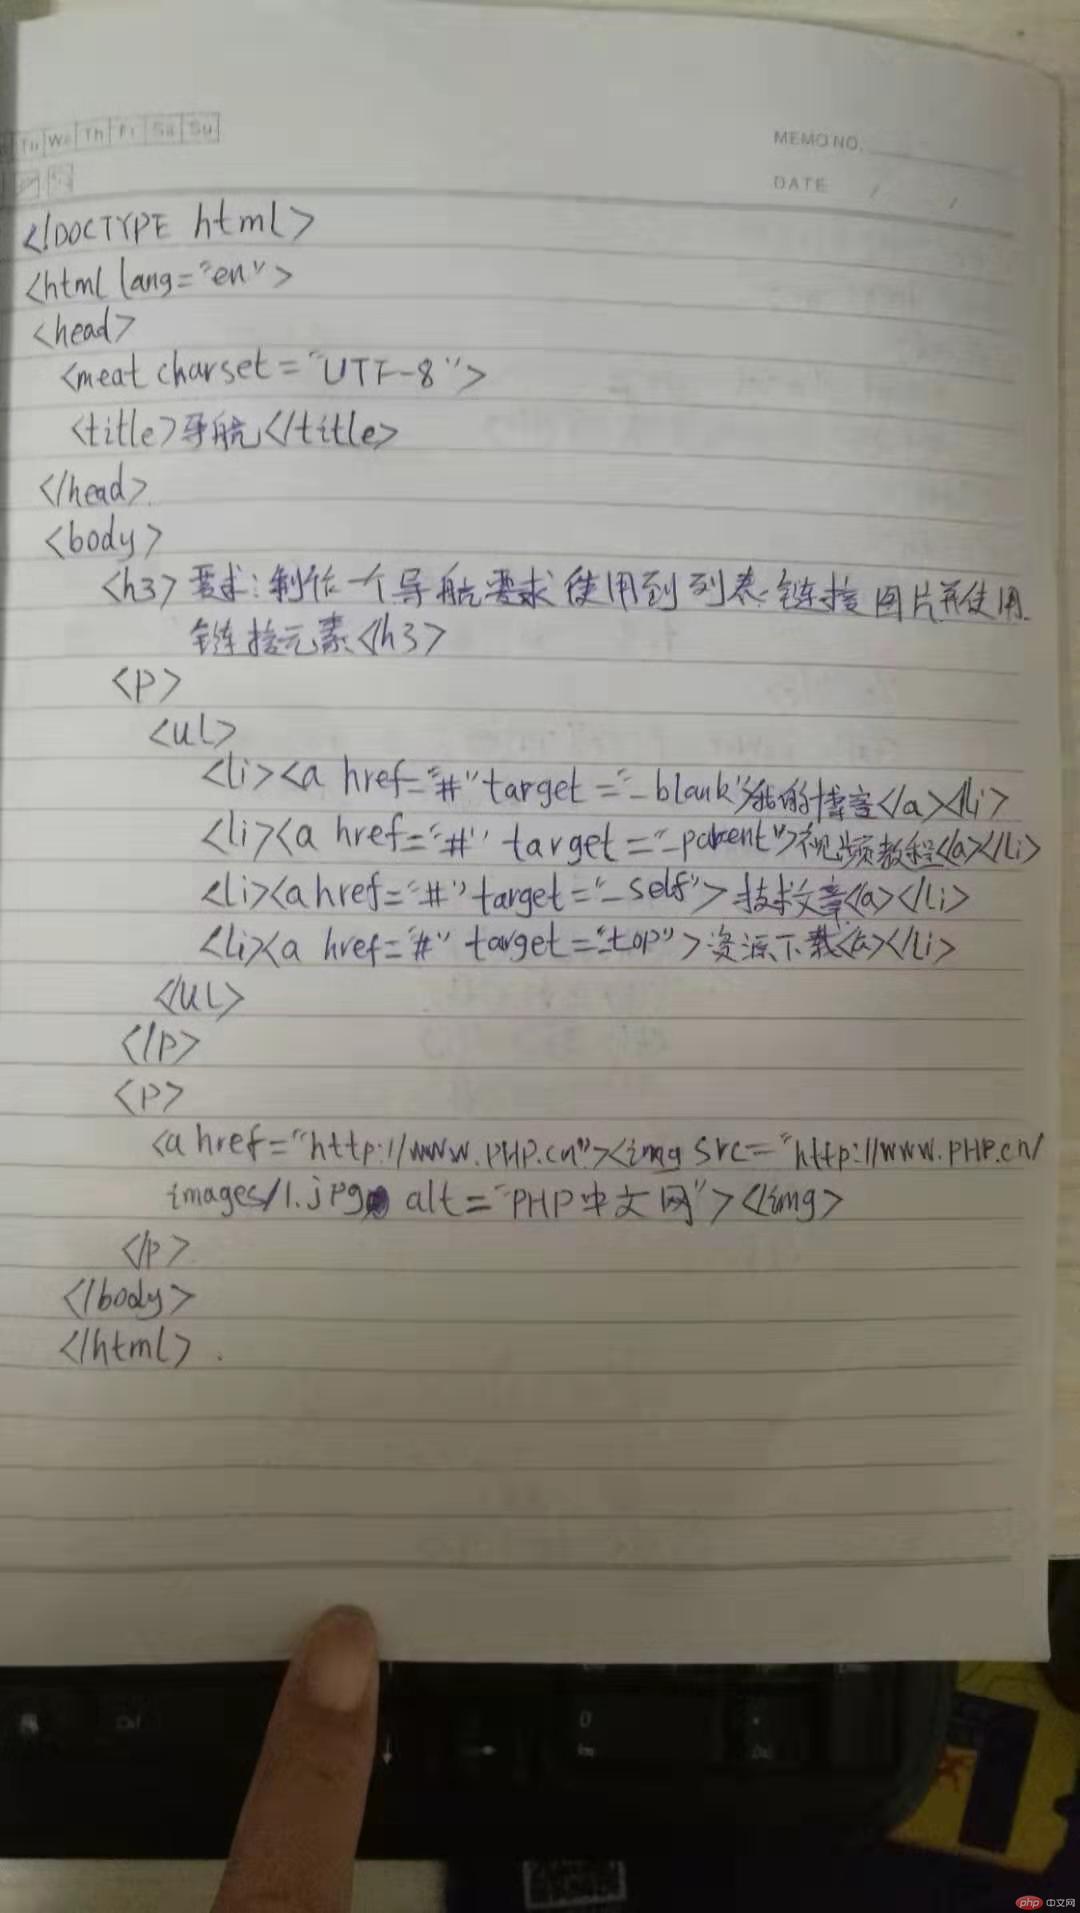 Tu We Th Fr Sa Su
MEMO NO.
DATE / /
<!DOCTYPE html>
<html lang="en">
<head>
<meat charset="UTF-8">
<title>导航</title>
</head>
<body>
<h3>要求:制作一个导航要求使用到列表.链接图片并使用
链接元素<h3>
<p>
<ul>
<li><a href="#" target="_blank">我的博客</a></li>
<li><a href="#" target="_parent">视频教程</a></li>
<li><a href="#" target="_self">技术文章</a></li>
<li><a href="#" target="_top">资源下载</a></li>
</ul>
</p>
<p>
<a href="http://www.PHP.cn"><img src="http://www.PHP.cn/
images/1.jpg alt="PHP中文网"></img>
</p>
</body>
</html>.
Ctrl
0
Ins
.
Del
php 中文网